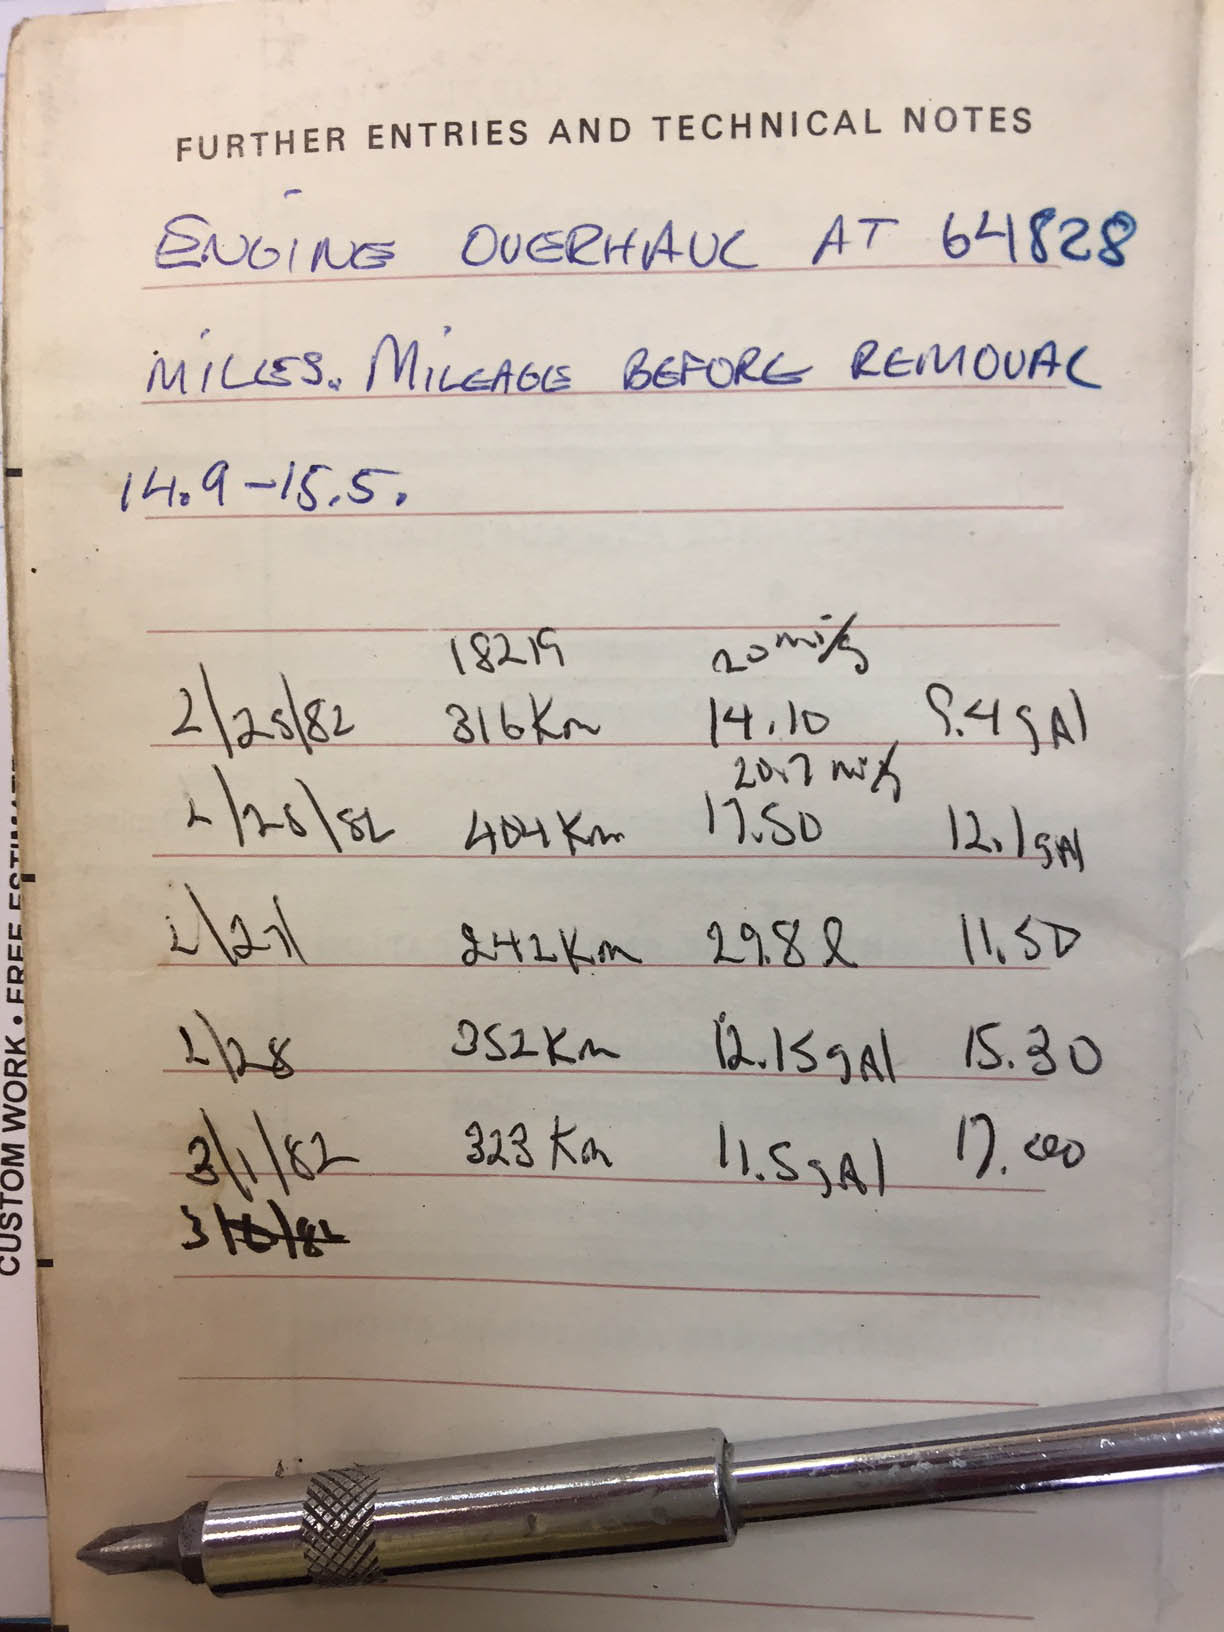 FURTHER ENTRIES AND TECHNICAL NOTES
ENGINE OVERHAUL AT 64828
MILES. MILEAGE BEFORE REMOVAL
14.9-15.5.
18219 20 mi/g
2/25/82 316 Km 14.10 9.4 gAl
20.7 mi/g
2/26/82 404 Km 17.50 12.1 gAl
2/27/ 242 Km 29.8 l 11.50
2/28 352 Km 12.15 gAl 15.30
3/1/82 323 Km 11.5 gAl 17.00
CUSTOM WORK • FREE ESTIMATE